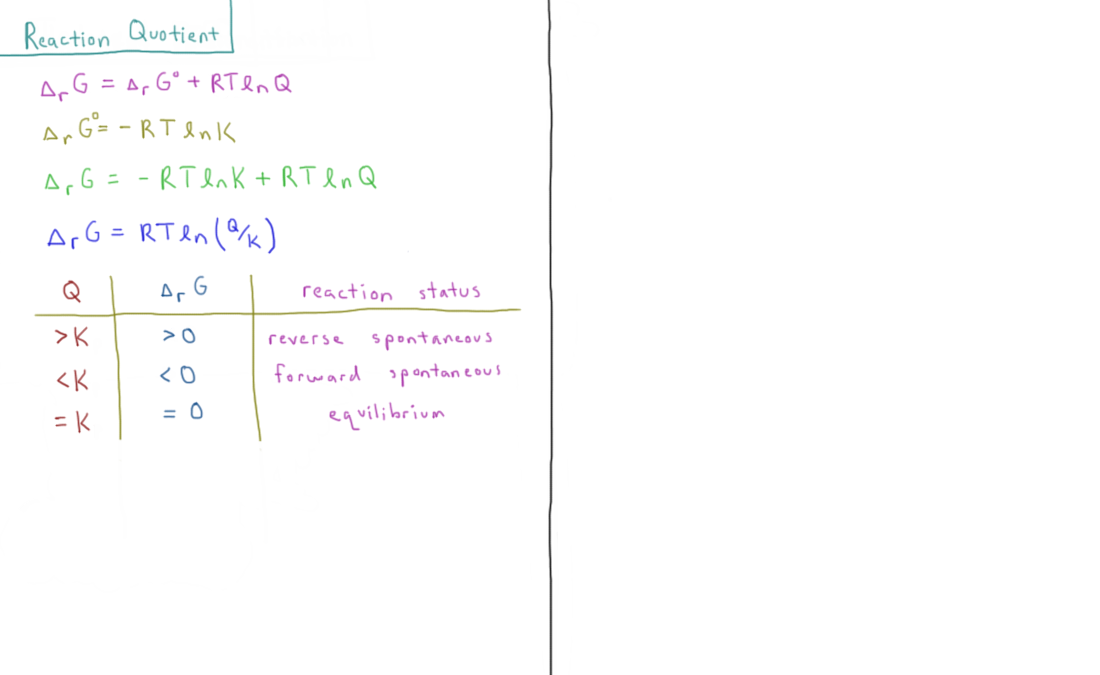 Reaction Quotient
ΔrG = ΔrG° + RT ln Q
ΔrG° = - RT ln K
ΔrG = - RT ln K + RT ln Q
ΔrG = RT ln (Q/K)
Q ΔrG reaction status
>K >0 reverse spontaneous
<K <0 forward spontaneous
=K =0 equilibrium